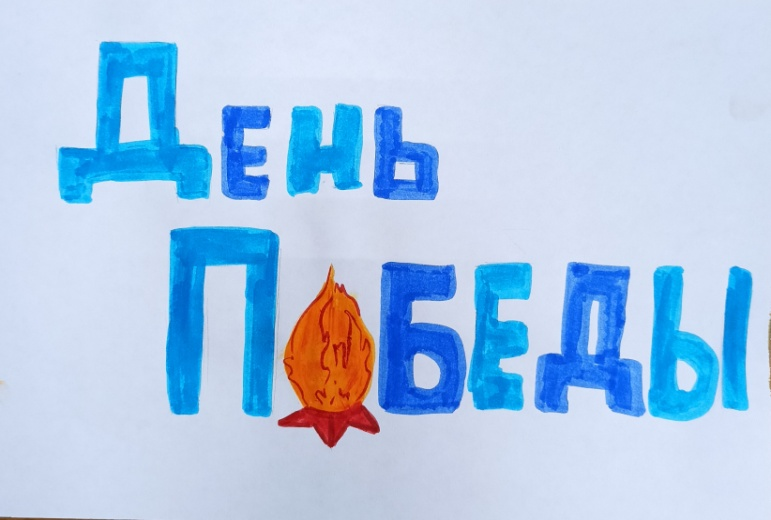 День
Победы